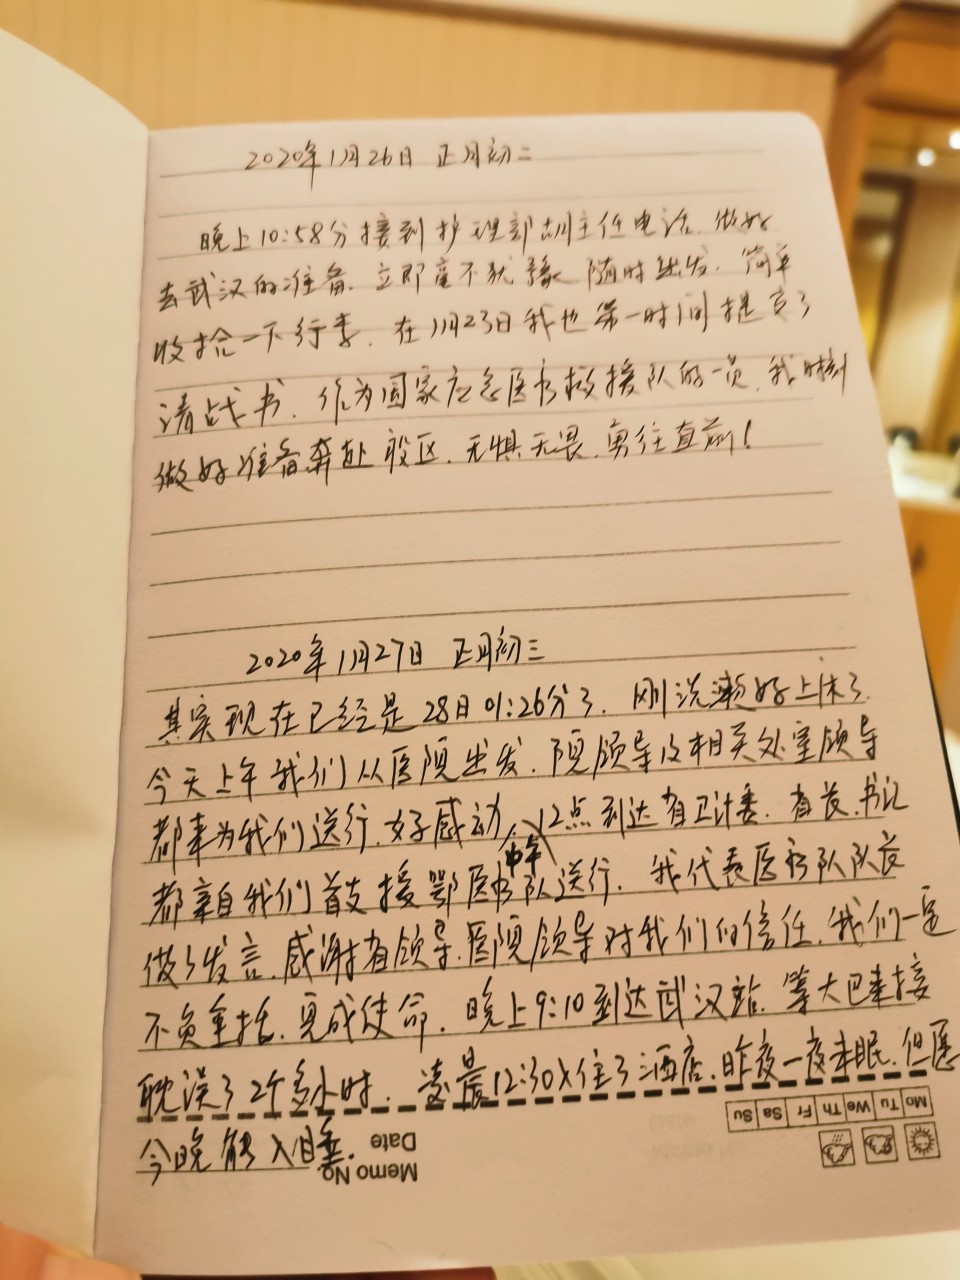 2020年1月26日 正月初二
晚上10:58分接到护理部胡主任电话.做好
去武汉的准备.立即毫不犹豫 随时出发.简单
收拾一下行李.在1月23日我也第一时间提交了
请战书.作为国家应急医疗救援队的一员.我时刻
做好准备奔赴 疫区.无惧无畏.勇往直前!
2020年1月27日 正月初三
其实现在已经是28日01:26分了.刚洗漱好上床了.
今天上午我们从医院出发.院领导及相关处室领导
都来为我们送行.好感动.12点到达省卫计委.省长.书记
中午
都亲自我们首支援鄂医疗队送行.我代表医疗队队长
做了发言.感谢省领导.医院领导对我们的信任.我们一定
不负重托.完成使命.晚上9:10到达武汉站.等大巴来接
耽误了2个多小时.凌晨12:30入住了酒店.昨夜一夜未眠.但愿
今晚能入睡.
Mo Tu We Th Fr Sa Su
Memo No.
Date